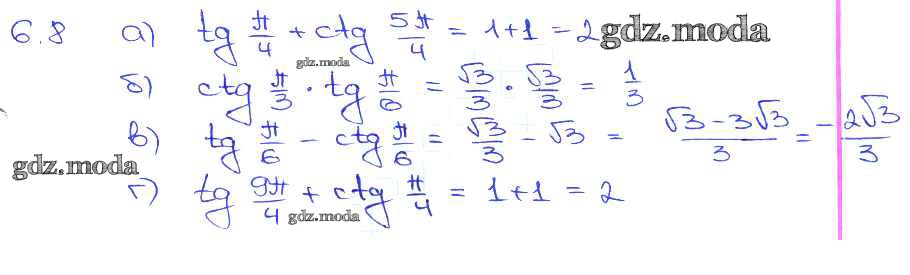 6.8 а) tg π/4 + ctg 5π/4 = 1+1 = 2 gdz.moda
gdz.moda
б) ctg π/3 · tg π/6 = √3/3 · √3/3 = 1/3
в) tg π/6 − ctg π/6 = √3/3 − √3 = (√3 − 3√3)/3 = −2√3/3
gdz.moda
г) tg 9π/4 + ctg π/4 = 1+1 = 2
gdz.moda